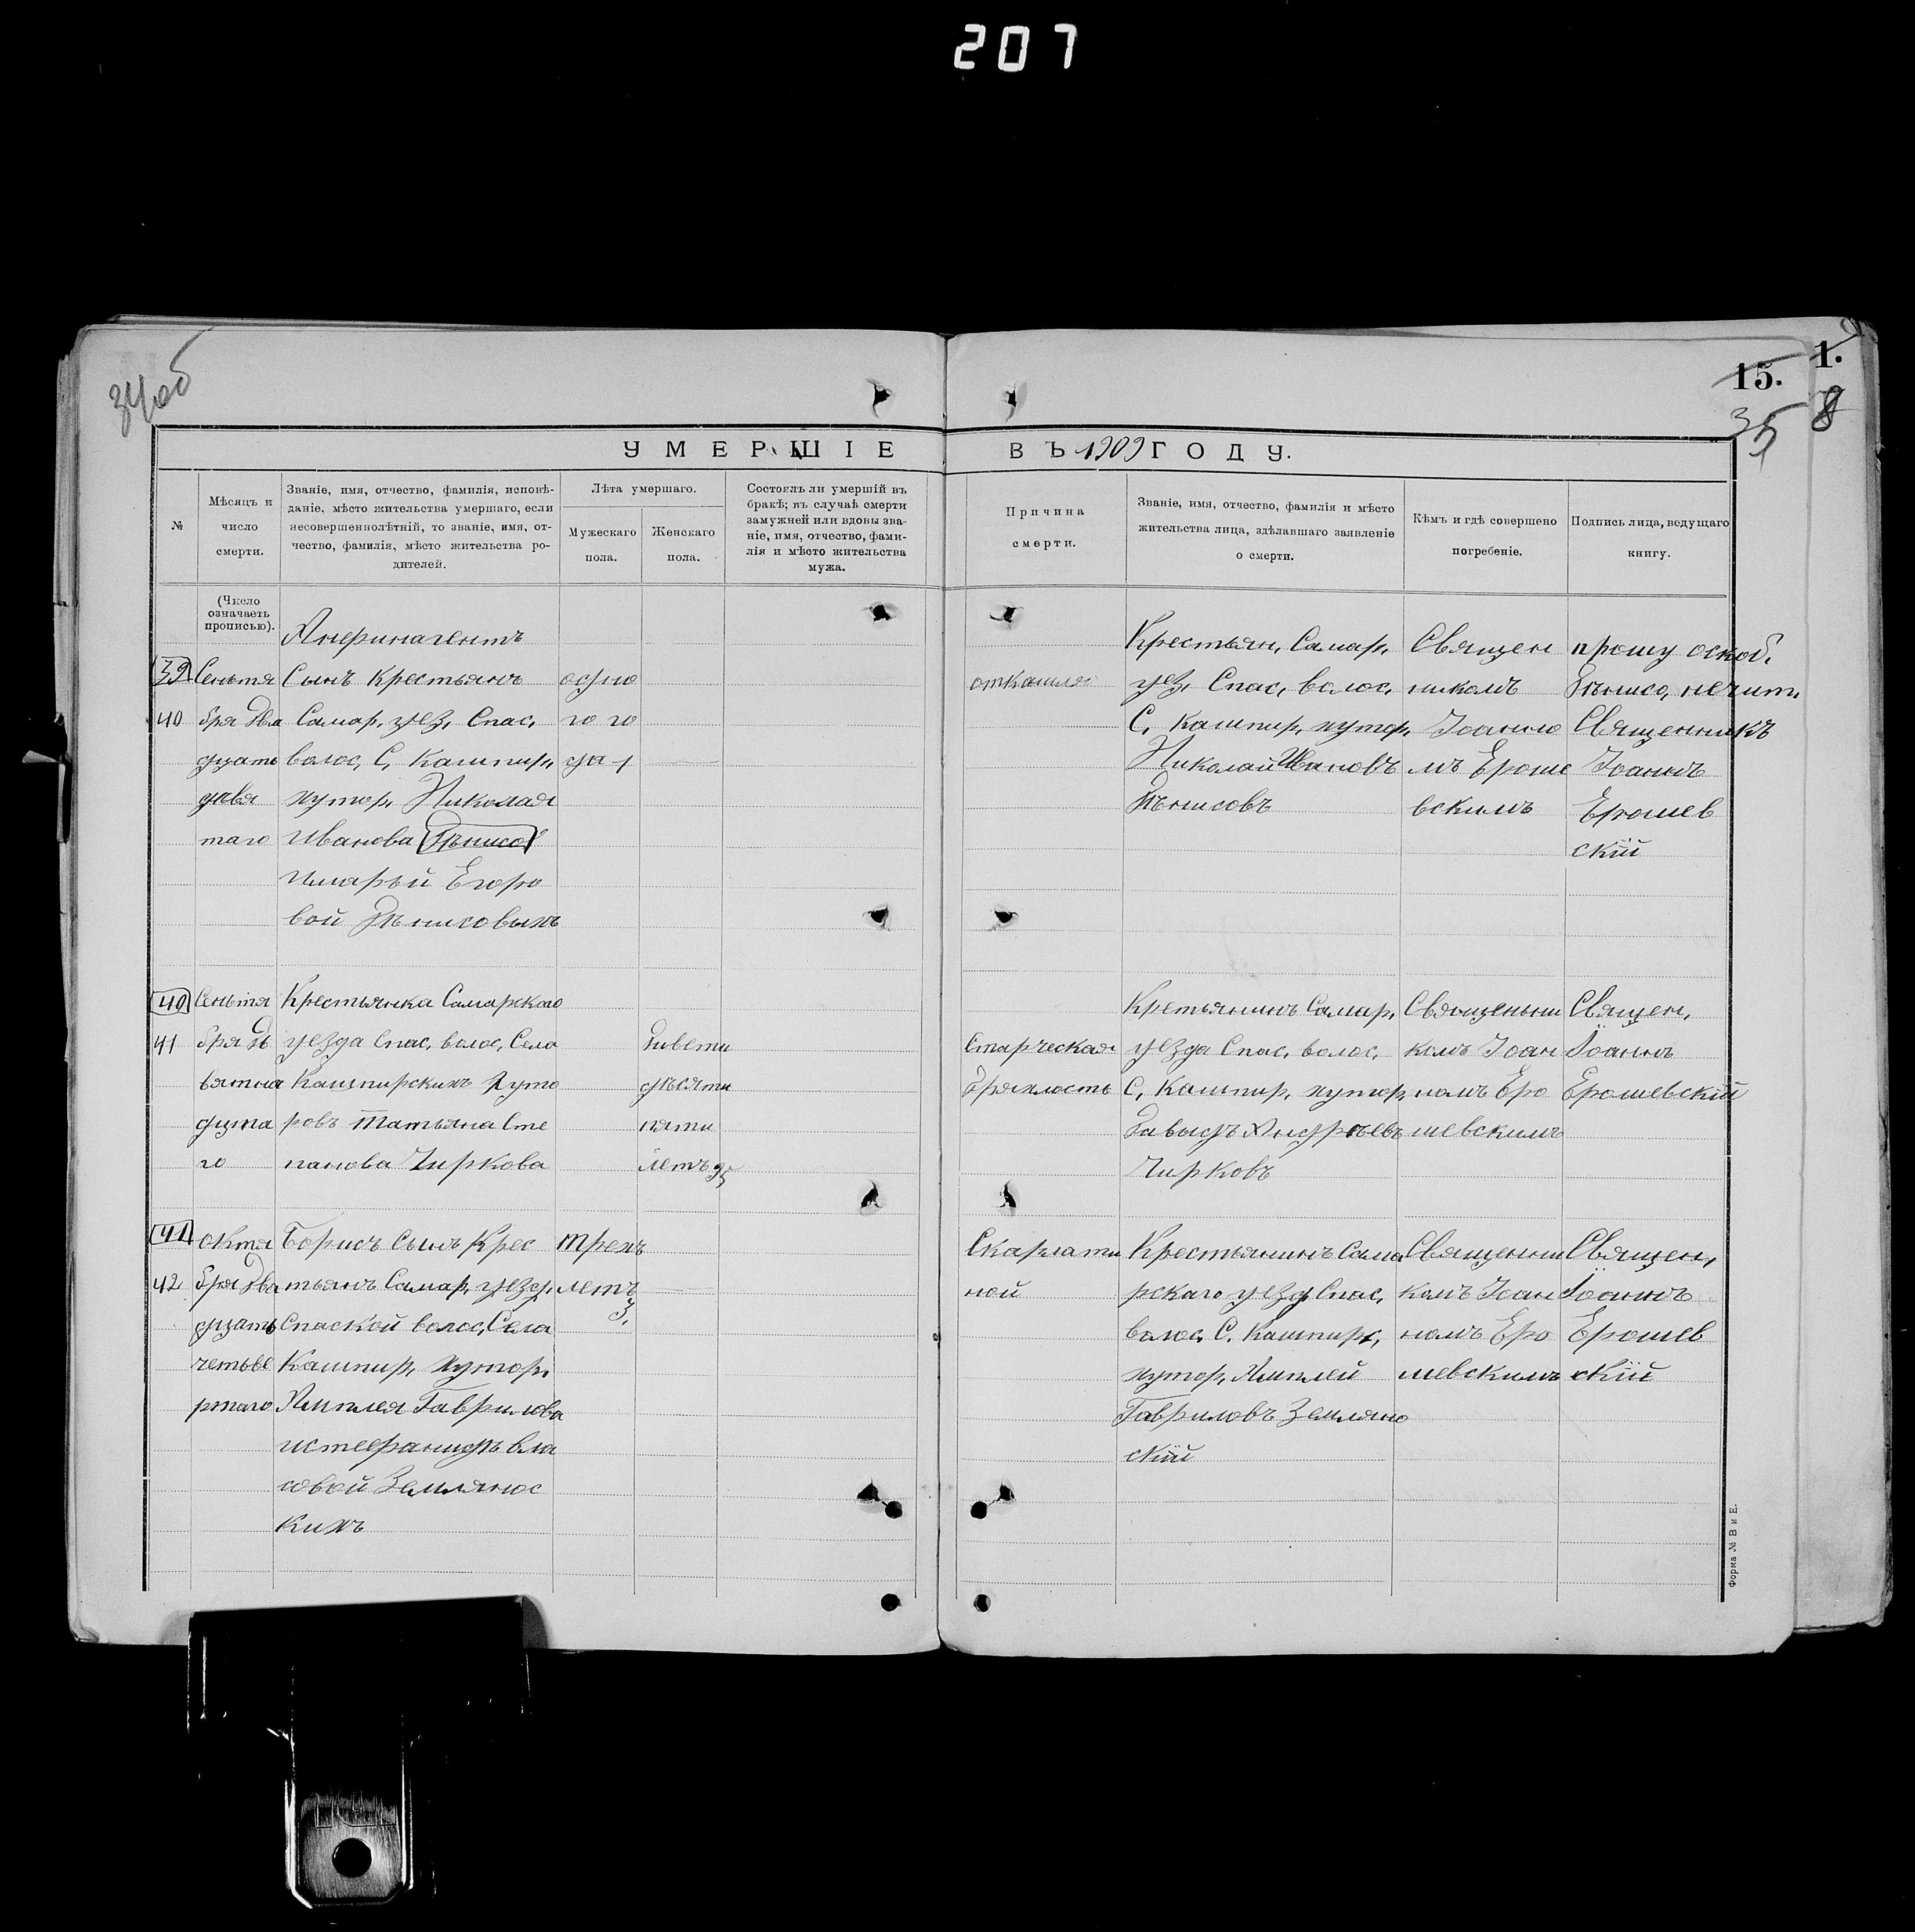 207
34об
15.
1.
35
8
УМЕРШІЕ ВЪ 1909 ГОДУ.
№
Мѣсяцъ и число смерти.
Званіе, имя, отчество, фамилія, исповѣ-
даніе, мѣсто жительства умершаго, если
несовершеннолѣтній, то званіе, имя, от-
чество, фамилія, мѣсто жительства ро-
дителей.
Лѣта умершаго.
Мужескаго пола.
Женскаго пола.
Состоялъ ли умершій въ
бракѣ; въ случаѣ смерти
замужней или вдовы зва-
ніе, имя, отчество, фами-
лія и мѣсто жительства
мужа.
Причина смерти.
Званіе, имя, отчество, фамилія и мѣсто
жительства лица, здѣлавшаго заявленіе
о смерти.
Кѣмъ и гдѣ совершено
погребеніе.
Подпись лица, ведущаго
книгу.
(Число
означаетъ
прописью).
39
40
Сентя
бря два
дцать
девя
таго
Сынъ Крестьянъ
Самар, уез, Спас,
волос, С, Кашпир,
хутор, Николая
Иванова Дѣнисо
Имарьи Егоро
вой Дѣнисовыхъ
одно
го го
да 1
откашля
Крестьян, Самар,
уез, Спас, волос,
С, Кашпир, хутор,
Николай Ивановъ
Дѣнисовъ
Священ
никомъ
Іоанно
мъ Ероше
вскимъ
прошу оскоб,
Дѣнисо, нечит,
Священникъ
Іоаннъ
Ерошев
скій
40
41
Сентя
бря дѣ
вятна
дцта
го
Крестьянка Самарскаго
уезда Спас, волос, Села
Кашпирскихъ Хуто
ровъ Татьяна Сте
панова Чиркова
дивети
дѣсяти
пяти
летъ 95
Старческая
дряхлость
Кретьянинъ Самар,
уезда Спас, волос,
С, Кашпир, хутор,
Давыдъ Андрѣевъ
Чирковъ
Священьни
комъ Іоан
номъ Еро
шевскимъ
Священ,
Іоаннъ
Ерошевскій
41
42
октя
бря два
дцать
четьве
ртаго
Борисъ Сынъ Крес
тьянъ Самар, уезд,
Спаской волос, Села
Кашпир, хутор,
Имплея Гаврилова
истефаниды Вла
совой Землянос
кихъ
трехъ
летъ
3,
Скарлати
ной
Крестьянинъ Сама
рскаго уезд Спас,
волос, С. Кашпир,
хутор, Имплей
Гавриловъ Земляно
скій
Священни
комъ Іоан
номъ Еро
шевскимъ
Священ,
Іоаннъ
Ерошев
скій
Форма № В и Е.